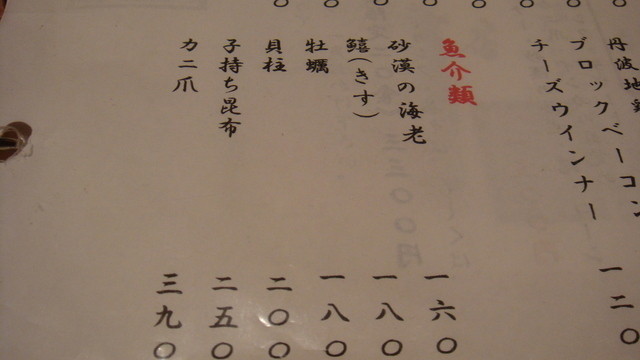 丹波地
ブロックベーコン
チーズウインナー 一二〇
魚介類
砂漠の海老 一六〇
鱚(きす) 一八〇
牡蠣 一八〇
貝柱 二〇〇
子持ち昆布 二五〇
カニ爪 三九〇